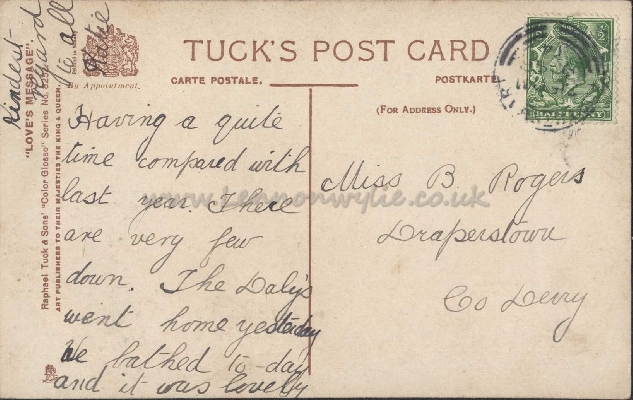 TUCK'S POST CARD
CARTE POSTALE.
POSTKARTE.
(FOR ADDRESS ONLY.)
By Appointment.
Having a quite
time compared with
last year. There
are very few
down. The Daly's
went home yesterday
We bathed to-day
and it was lovely
Kindest
regard
to all
Miss B Rogers
Draperstown
Co Derry
"LOVE'S MESSAGE."
Raphael Tuck & Sons' "Color Glosso" Series No.
ART PUBLISHERS TO THEIR MAJESTIES THE KING & QUEEN.
HALFPENNY
www.lennonwylie.co.uk